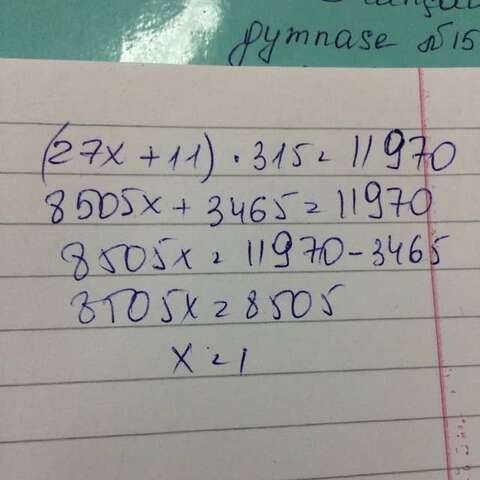 gymnase №15
(27x + 11) · 315 = 11970
8505x + 3465 = 11970
8505x = 11970 - 3465
8505x = 8505
x = 1